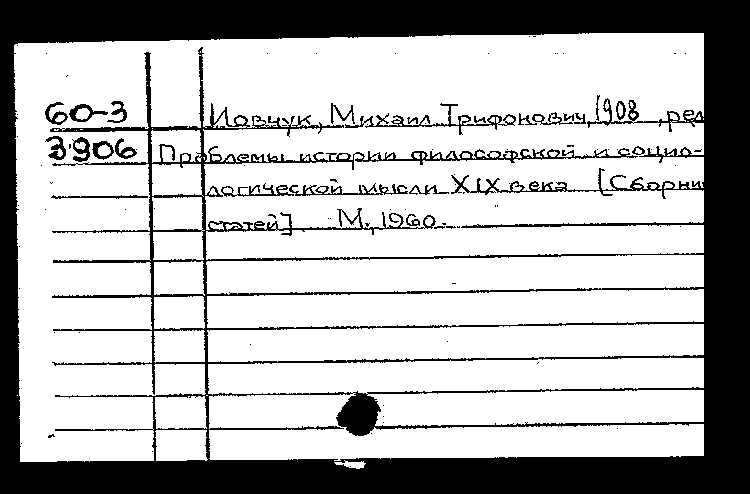 60-3 Иовчук, Михаил Трифонович, 1908 , ред
3906 Проблемы истории философской и социо-
логической мысли XIX века [Сборни
статей] М., 1960.